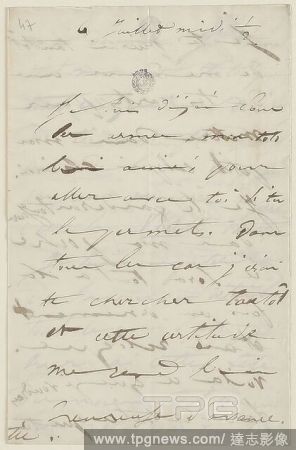 47
6 juillet midi ½
Je suis déjà
bien aimé, pour
aller avec toi si tu
le permets. Dans
tous les cas j'irai
te chercher tantôt
et cette certitude
me rend bien
heureuse d'avance.
TPG
www.tpgnews.com / 達志影像